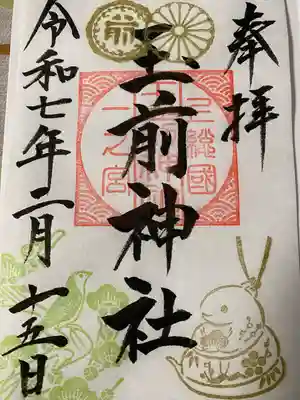 奉拝
玉前神社
上総國
一之宮
令和七年二月十五日